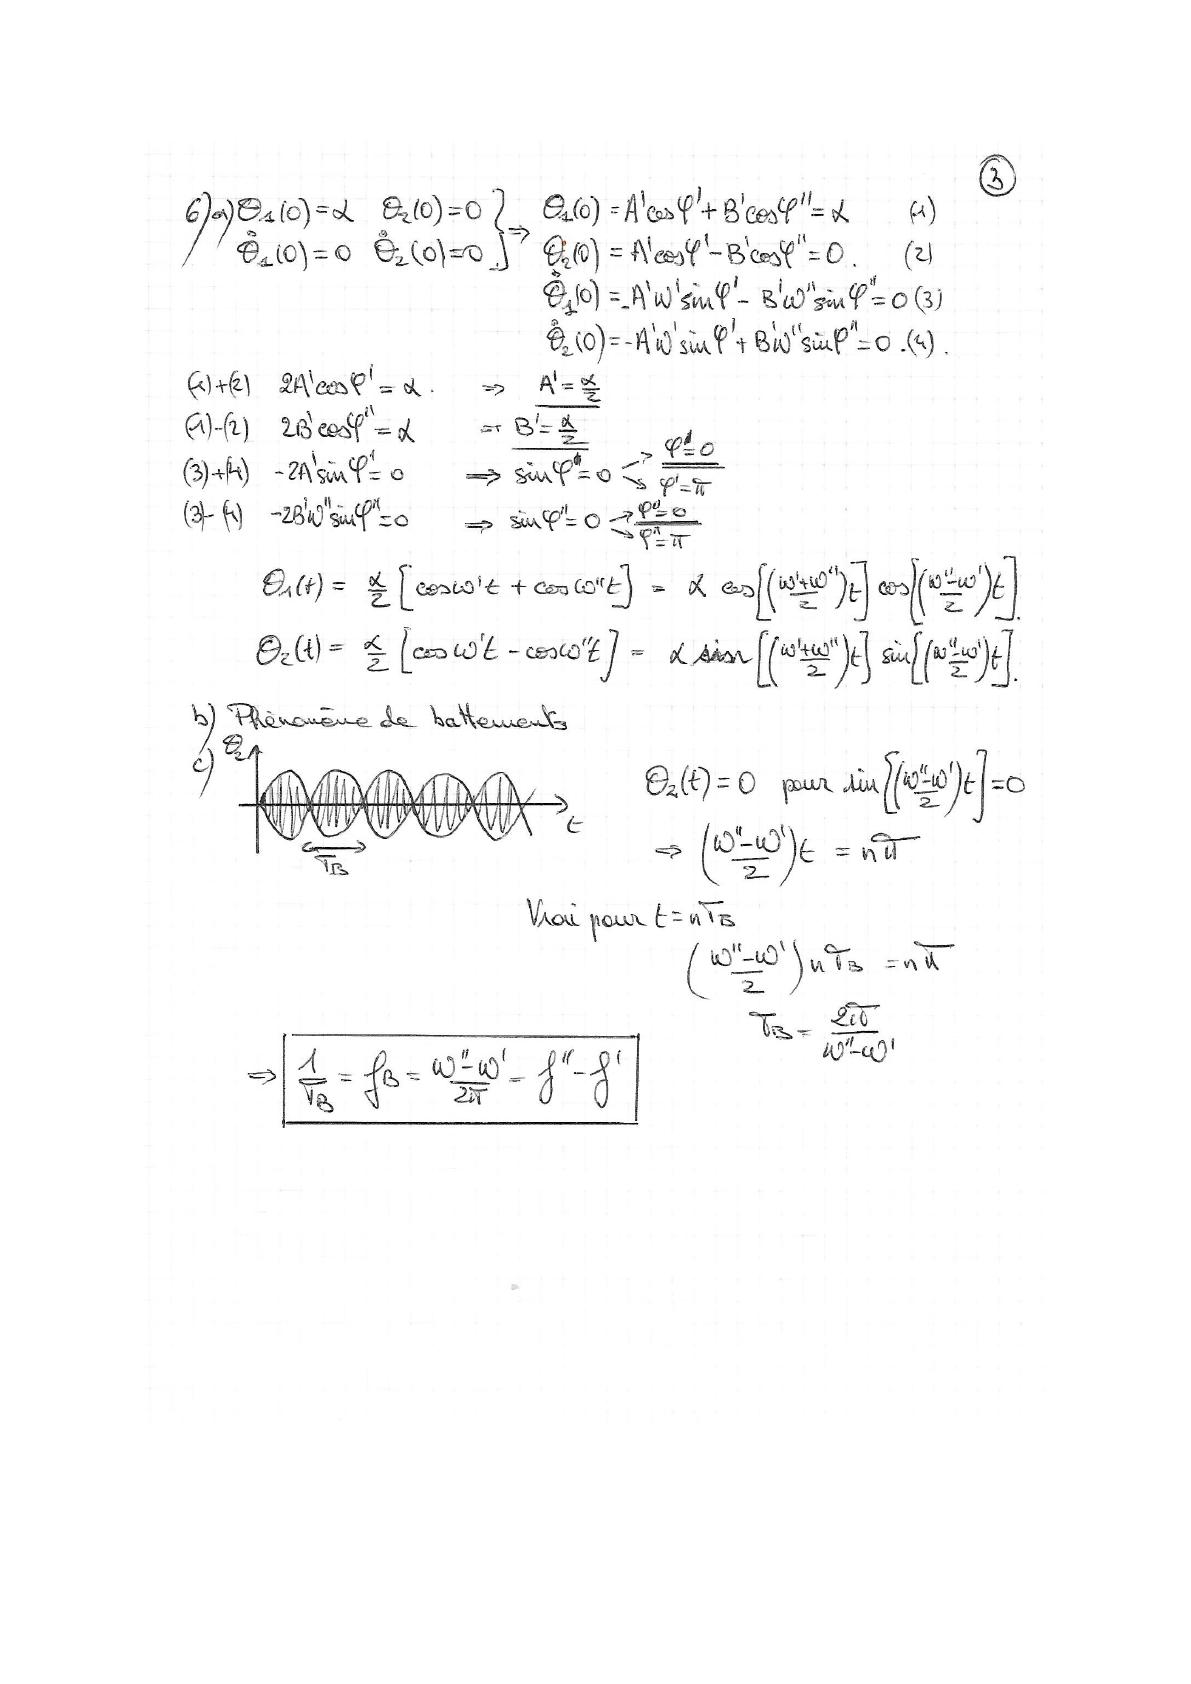 3
6) a) Θ₁(0) = α Θ₂(0) = 0 } ⇒ Θ₁(0) = A'cosφ' + B'cosφ'' = α (1)
Θ̊₁(0) = 0 Θ̊₂(0) = 0 Θ₂(0) = A'cosφ' - B'cosφ'' = 0. (2)
Θ̊₁(0) = -A'ω'sinφ' - B'ω''sinφ'' = 0 (3)
Θ̊₂(0) = -A'ω'sinφ' + B'ω''sinφ'' = 0. (4).
(1)+(2) 2A'cosφ' = α. ⇒ A' = α/2
(1)-(2) 2B'cosφ'' = α ⇒ B' = α/2
(3)+(4) -2A'sinφ' = 0 ⇒ sinφ' = 0 → φ' = 0
→ φ' = π
(3)-(4) -2B'ω''sinφ'' = 0 ⇒ sinφ'' = 0 → φ'' = 0
→ φ'' = π
Θ₁(t) = α/2 [cosω't + cosω''t] = α cos[((ω'+ω'')/2)t] cos[((ω''-ω')/2)t].
Θ₂(t) = α/2 [cosω't - cosω''t] = α sin[((ω'+ω'')/2)t] sin[((ω''-ω')/2)t].
b) Phénomène de battements
c) Θ₂
t
T_B
Θ₂(t) = 0 pour sin[((ω''-ω')/2)t] = 0
⇒ ((ω''-ω')/2)t = nπ
Vrai pour t = nT_B
((ω''-ω')/2) nT_B = nπ
T_B = 2π/(ω''-ω')
⇒ 1/T_B = f_B = (ω''-ω')/2π = f'' - f'